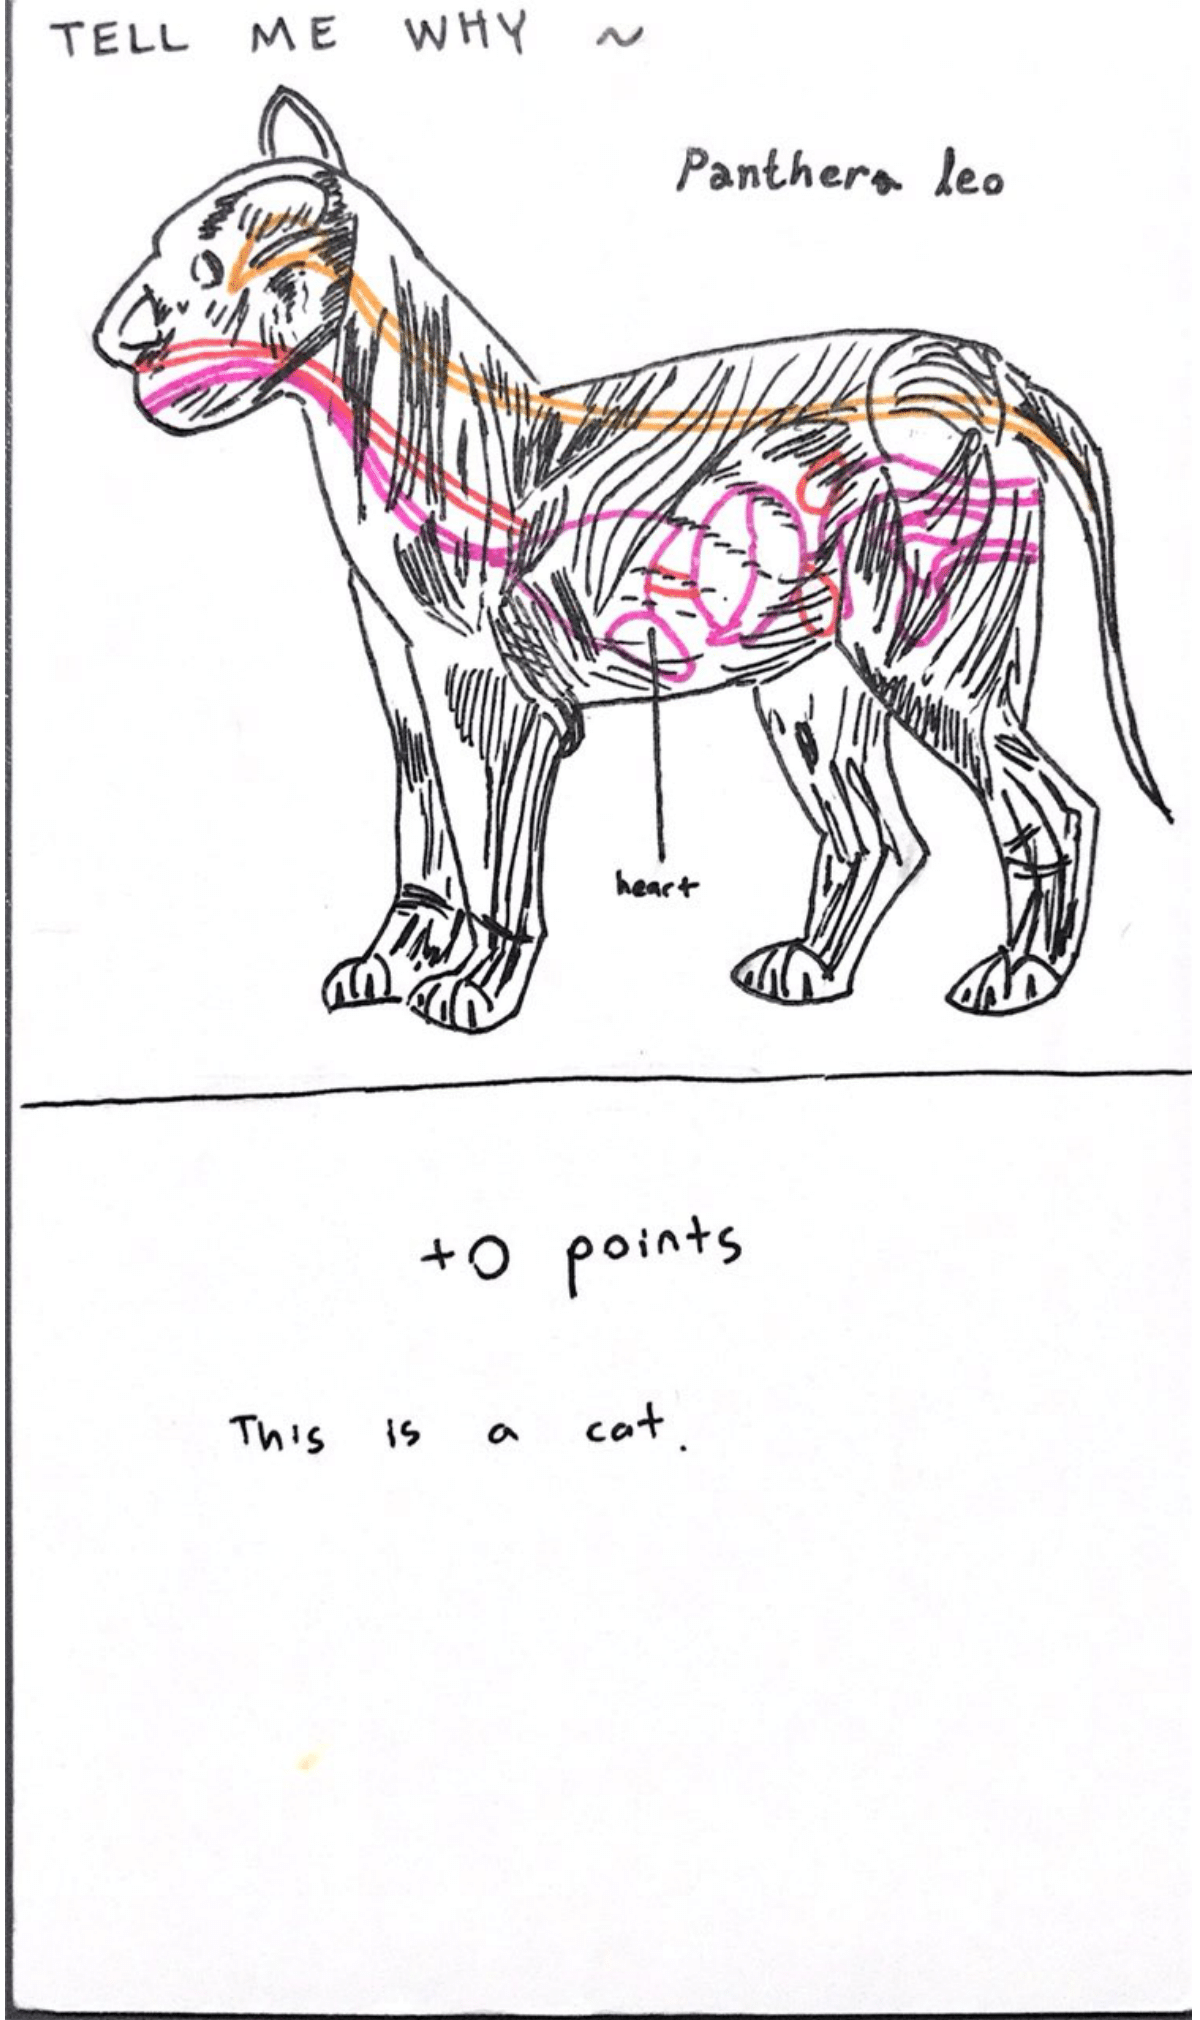 TELL ME WHY ~
Panthera leo
heart
+0 points
This is a cat.